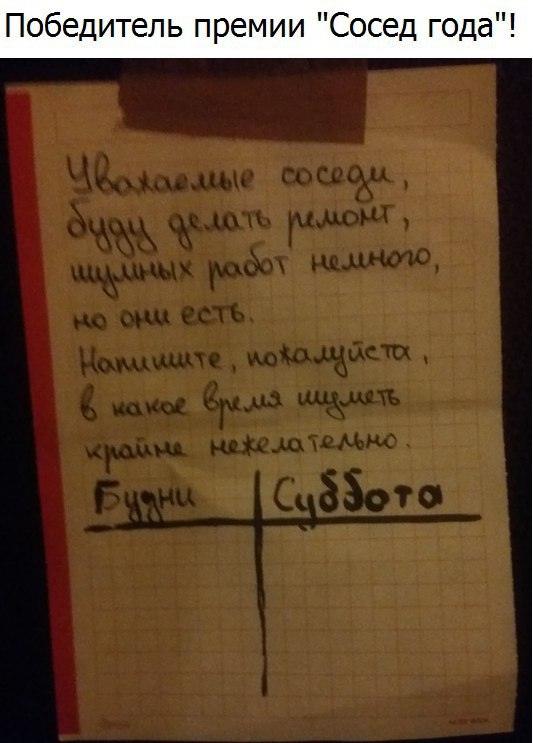 Победитель премии "Сосед года"!
Уважаемые соседи,
буду делать ремонт,
шумных работ немного,
но они есть.
Напишите, пожалуйста,
в какое время шуметь
крайне нежелательно.
Будни Суббота